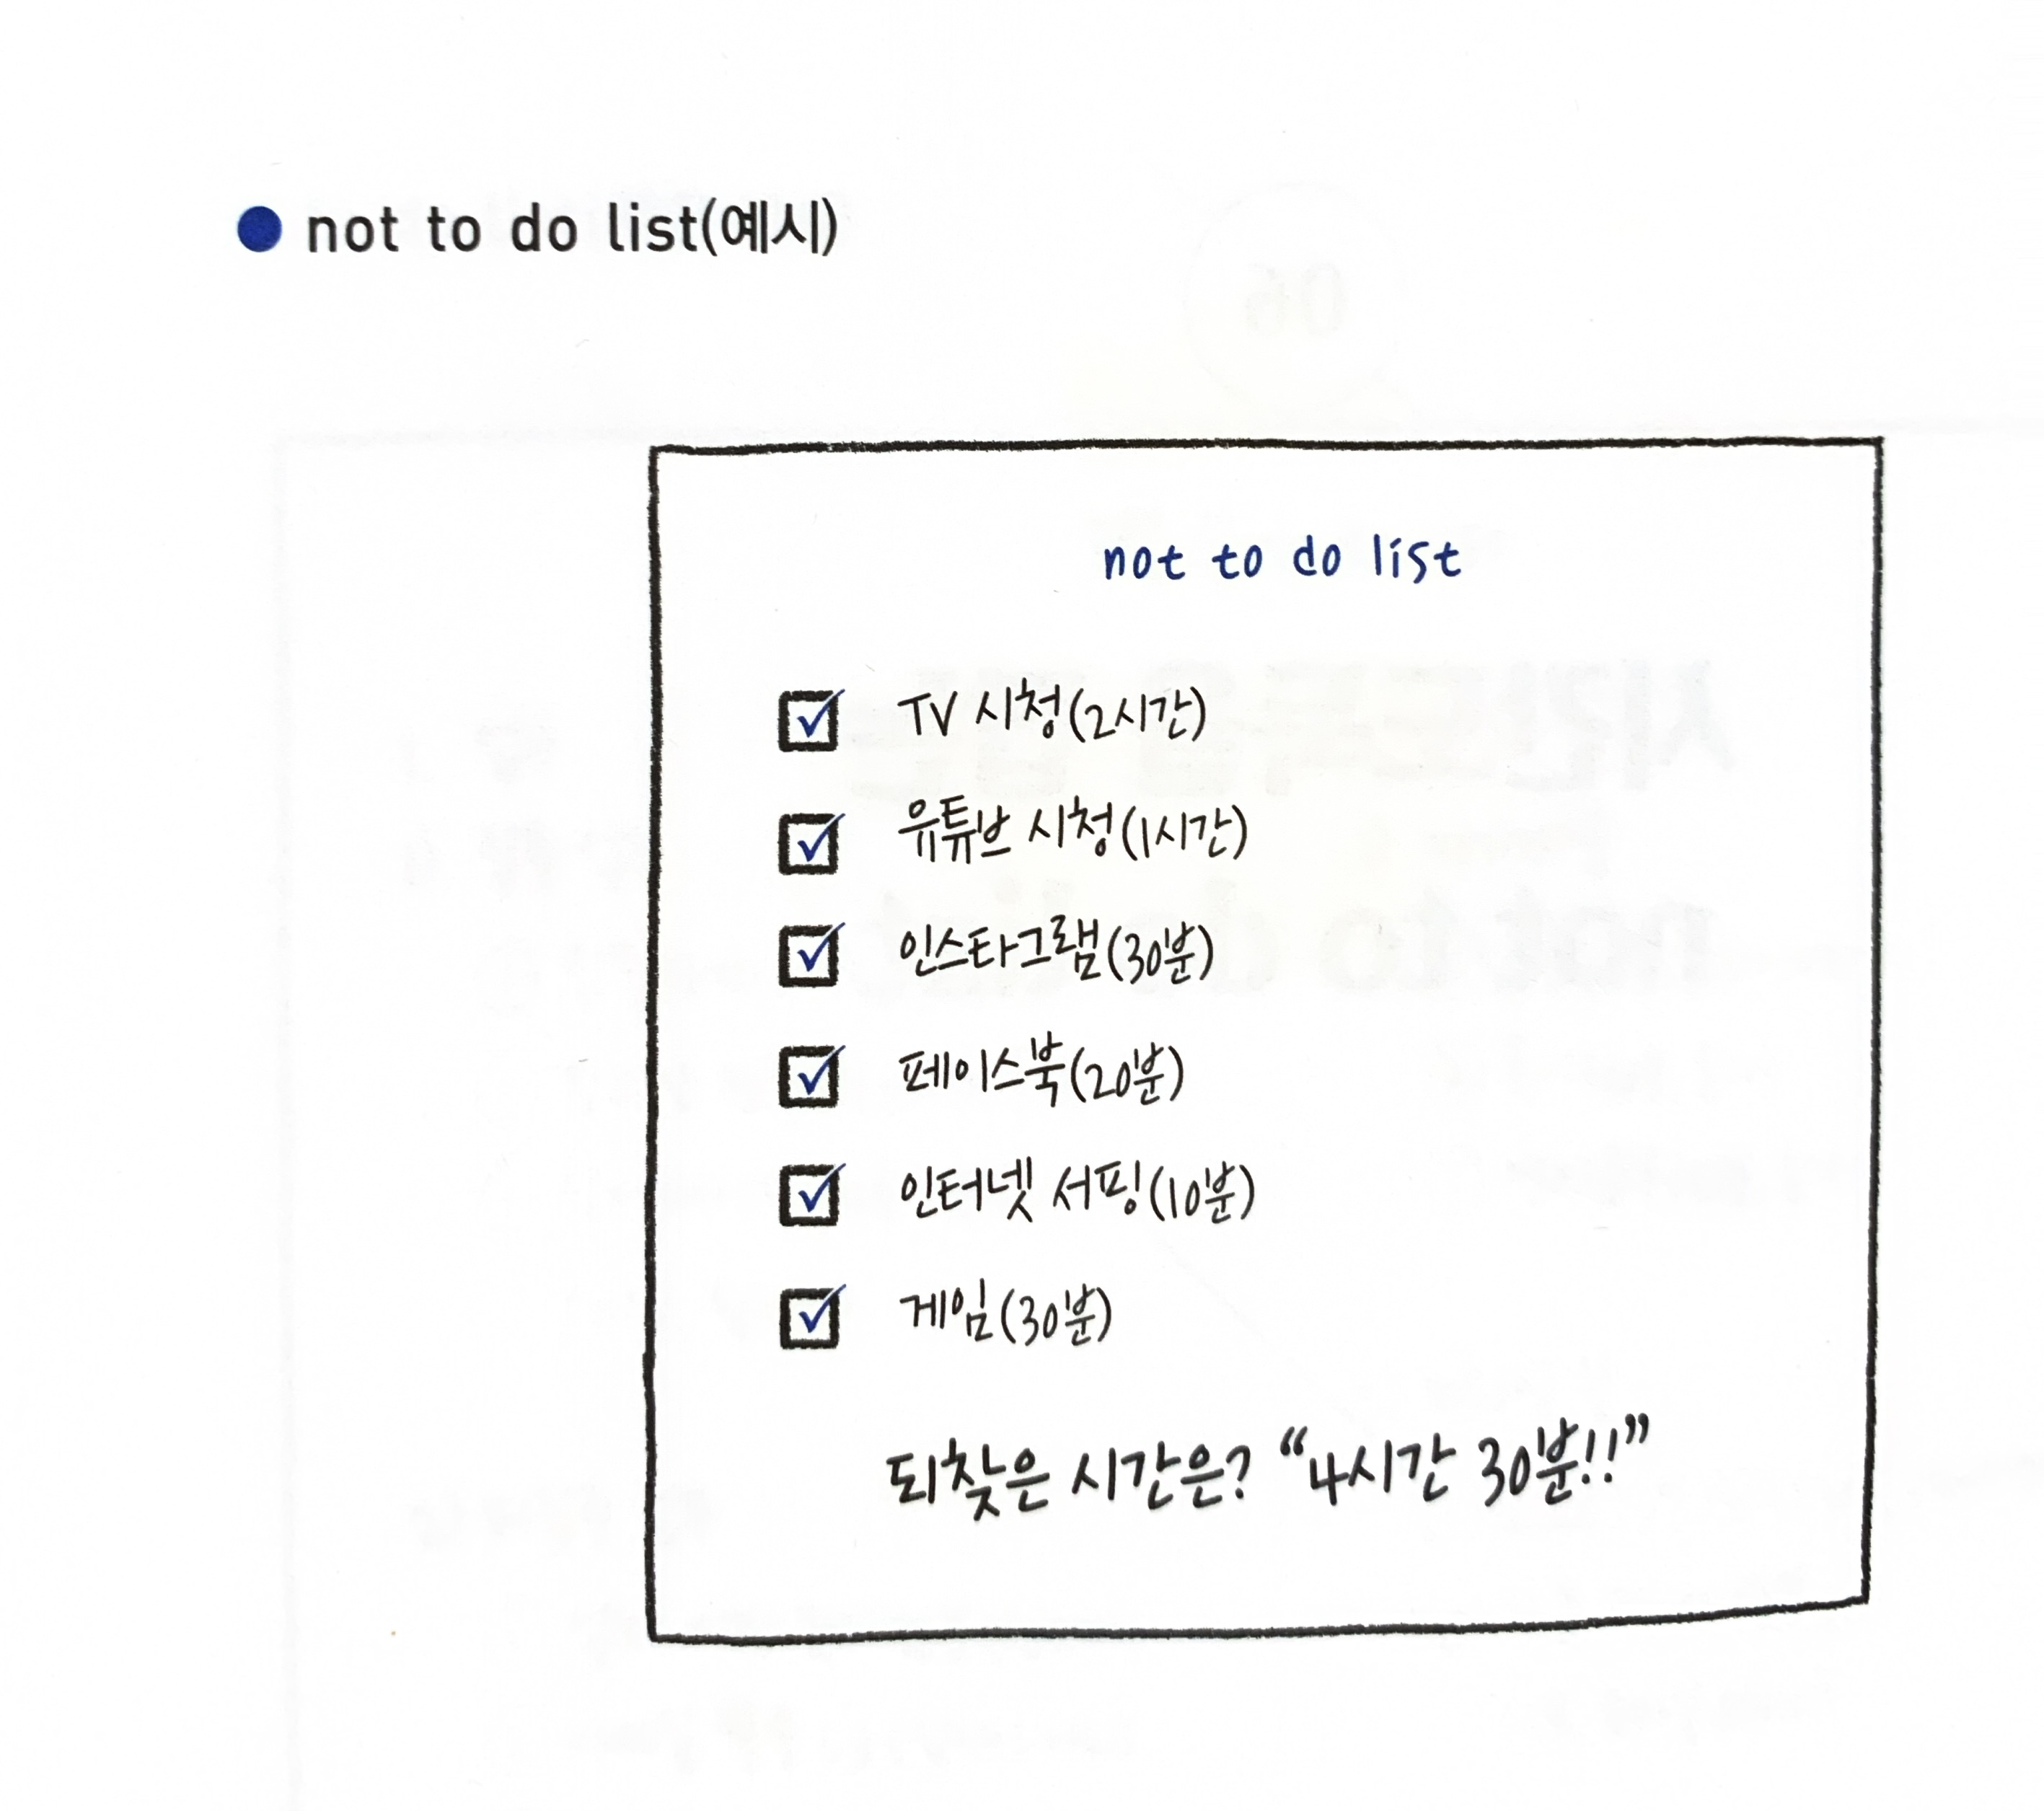 not to do list(예시)
not to do list
TV 시청(2시간)
유튜브 시청(1시간)
인스타그램(30분)
페이스북(20분)
인터넷 서핑(10분)
게임(30분)
되찾은 시간은? “4시간 30분!!”